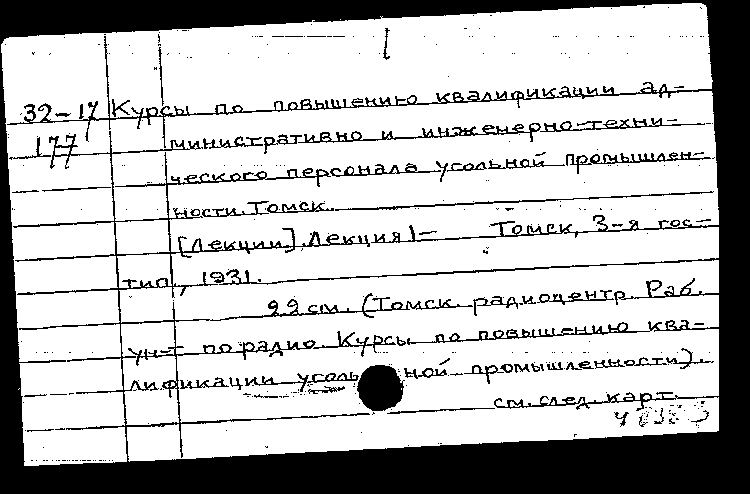 32-17 Курсы по повышению квалификации ад-
177 министративно и инженерно-техни-
ческого персонала угольной промышлен-
ности. Томск.
[Лекции]. Лекция 1- Томск, 3-я гос-
тип., 1931.
22 см. (Томск. радиоцентр. Раб.
ун-т по радио. Курсы по повышению ква-
лификации угольной промышленности).
см. след. карт.